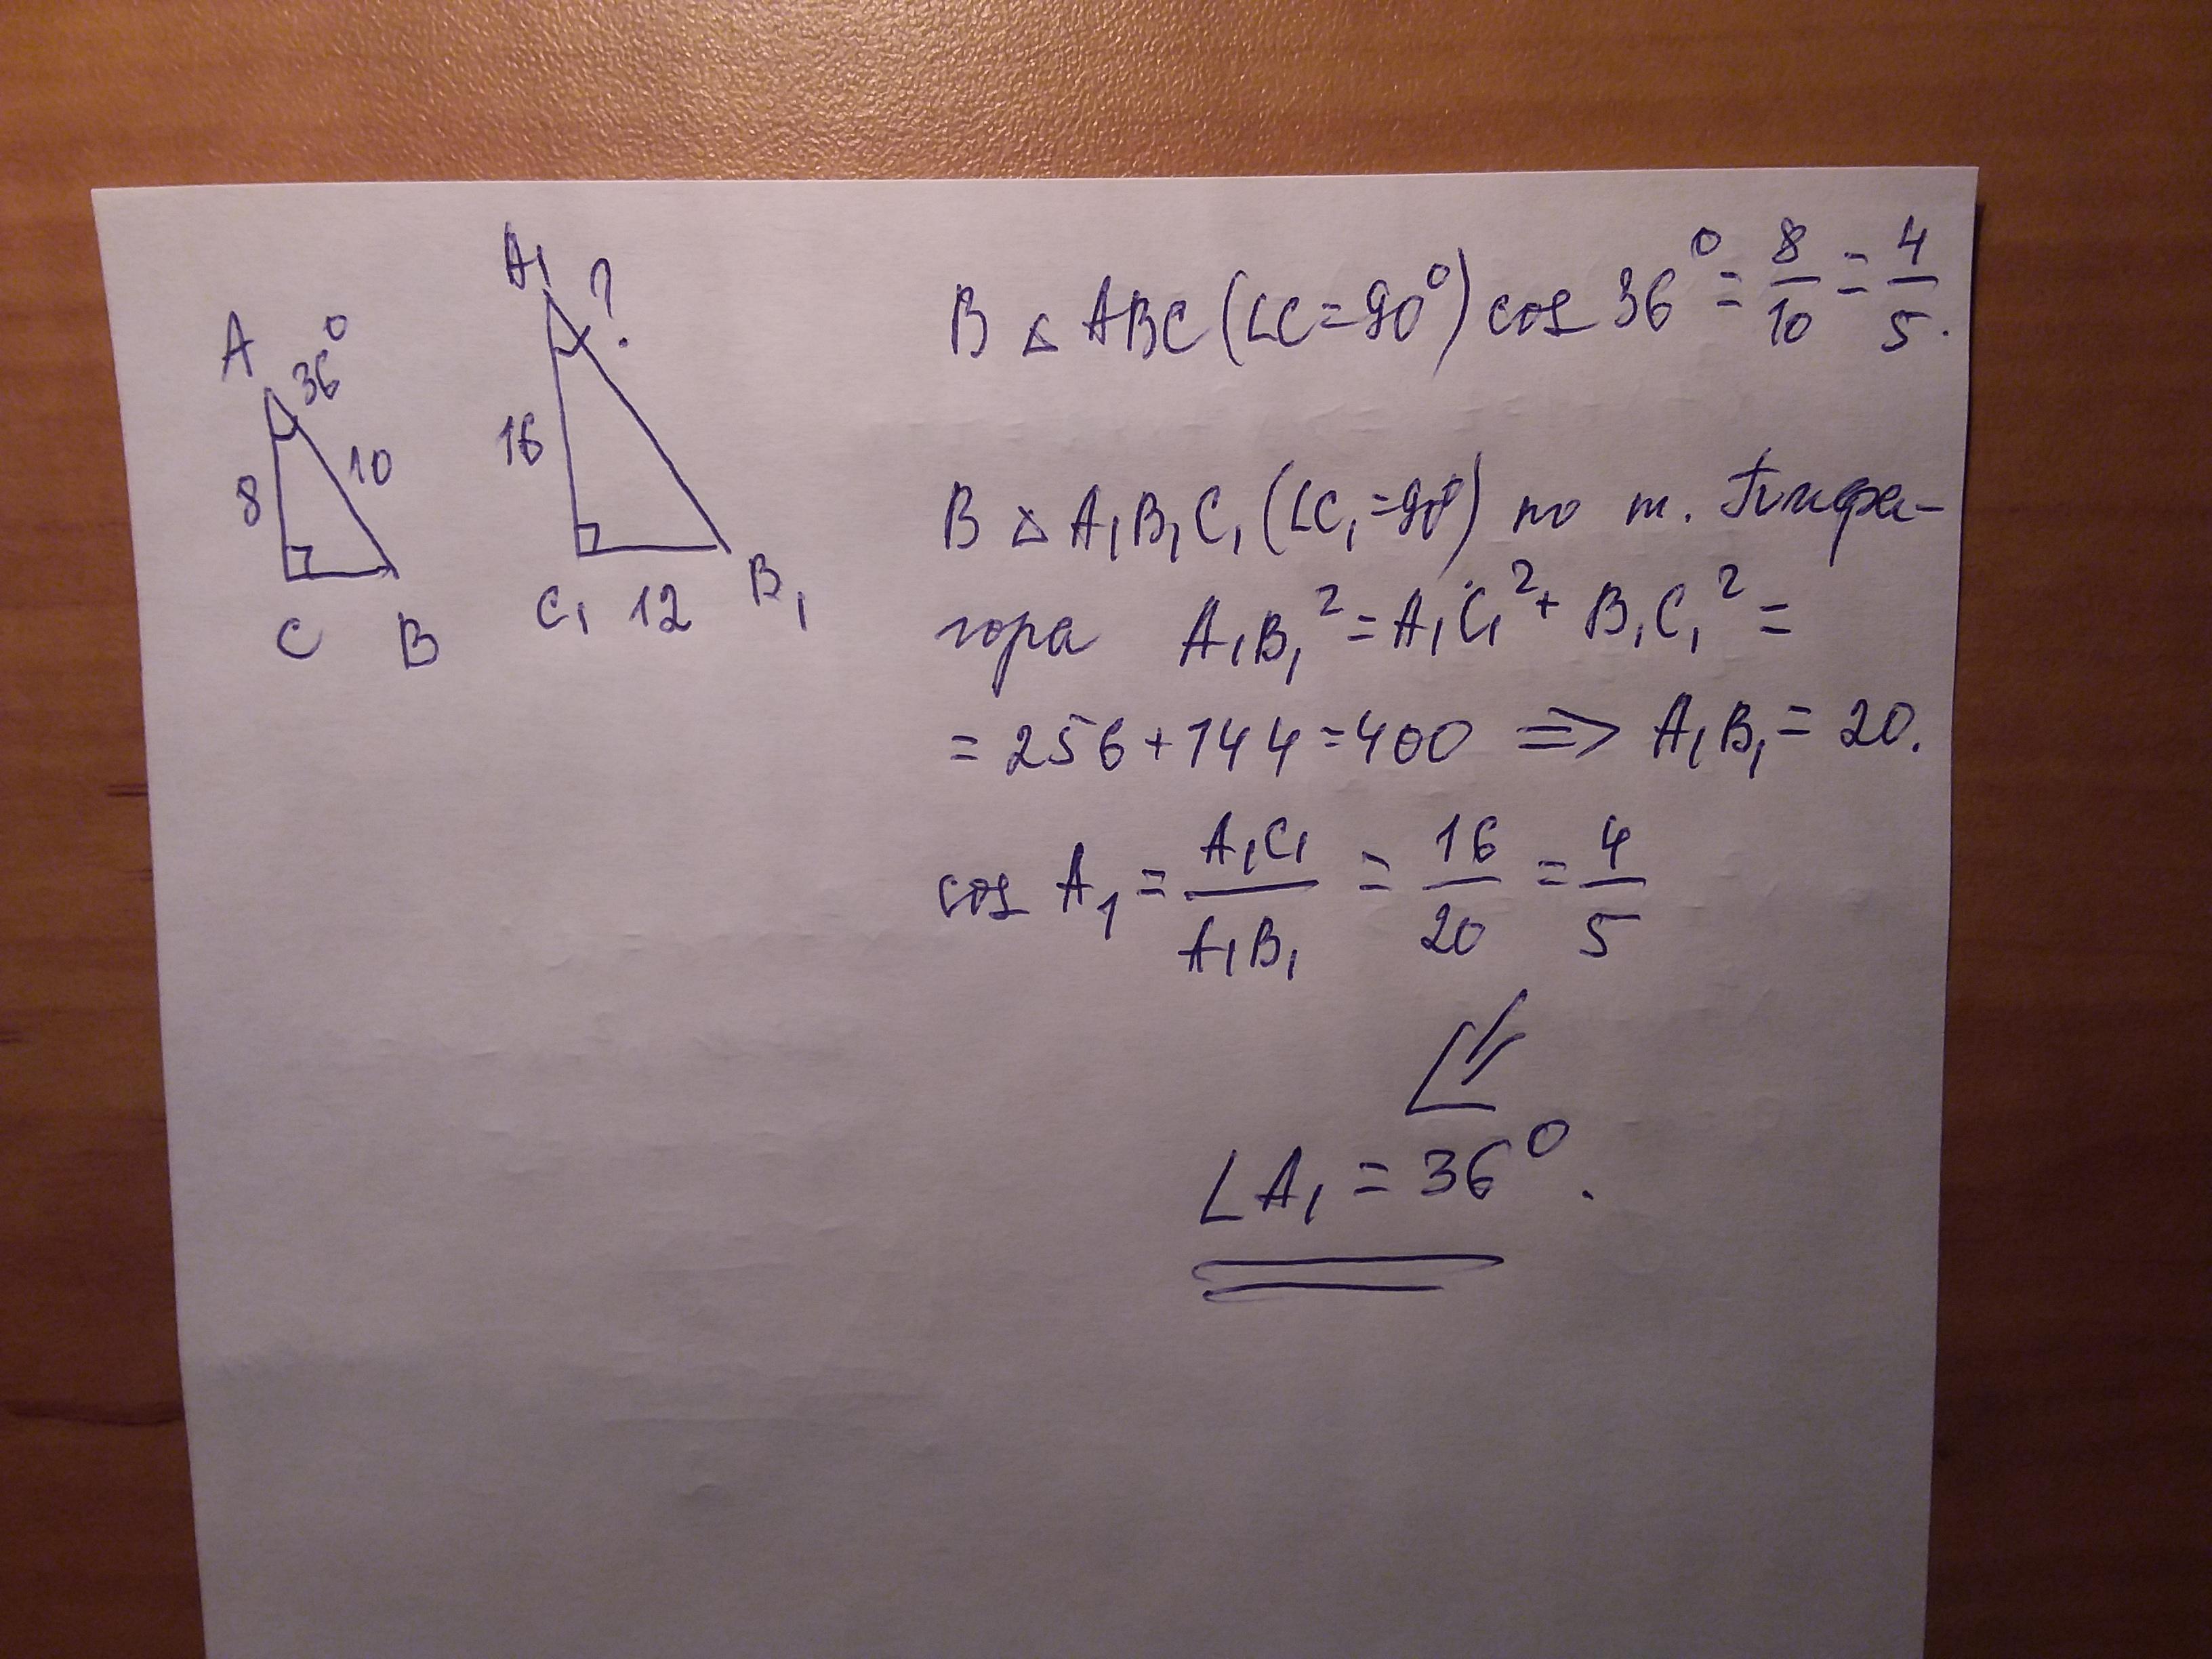 A 36°
8 10
C B
A₁ ?
16
C₁ 12 B₁
В △ ABC (∠C=90°) cos 36° = 8/10 = 4/5.
В △ A₁B₁C₁ (∠C₁=90°) по т. Пифа-
гора A₁B₁² = A₁C₁² + B₁C₁² =
= 256 + 144 = 400 ⇒ A₁B₁ = 20.
cos A₁ = A₁C₁/A₁B₁ = 16/20 = 4/5
⇙
∠A₁ = 36°.